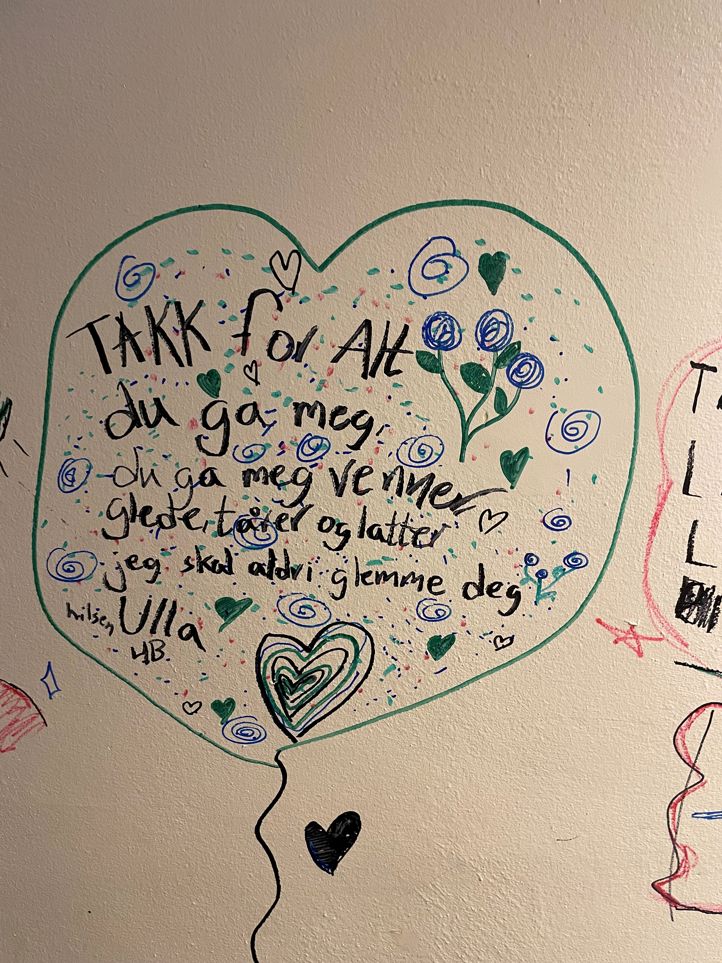 TAKK for Alt
du ga meg,
du ga meg venner
glede, tårer og latter
jeg skal aldri glemme deg
hilsen Ulla
4B
T
L
L